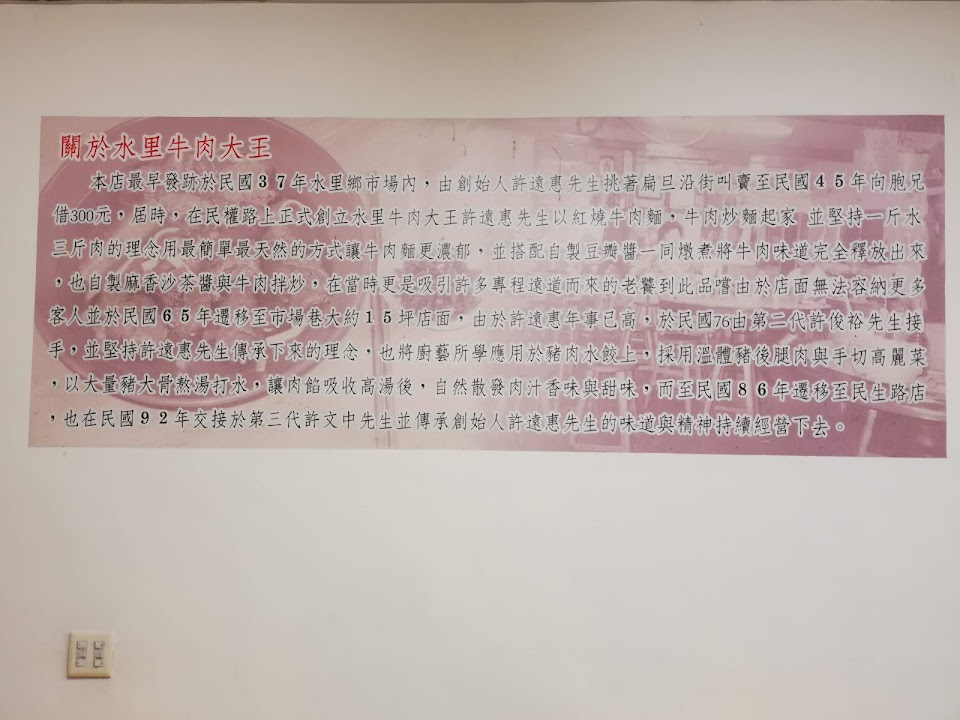 關於水里牛肉大王
本店最早發跡於民國37年水里鄉市場內，由創始人許遠惠先生挑著扁旦沿街叫賣至民國45年向胞兄
借300元，居時，在民權路上正式創立水里牛肉大王許遠惠先生以紅燒牛肉麵，牛肉炒麵起家 並堅持一斤水
三斤肉的理念用最簡單最天然的方式讓牛肉麵更濃郁，並搭配自製豆瓣醬一同燉煮將牛肉味道完全釋放出來
，也自製麻香沙茶醬與牛肉拌炒，在當時更是吸引許多專程遠道而來的老饕到此品嚐由於店面無法容納更多
客人並於民國65年遷移至市場巷大約15坪店面，由於許遠惠年事已高，於民國76由第二代許俊裕先生接
手，並堅持許遠惠先生傳承下來的理念，也將廚藝所學應用於豬肉水餃上，採用溫體豬後腿肉與手切高麗菜
，以大量豬大骨熬湯打水，讓肉餡吸收高湯後，自然散發肉汁香味與甜味，而至民國86年遷移至民生路店
，也在民國92年交接於第三代許文中先生並傳承創始人許遠惠先生的味道與精神持續經營下去。